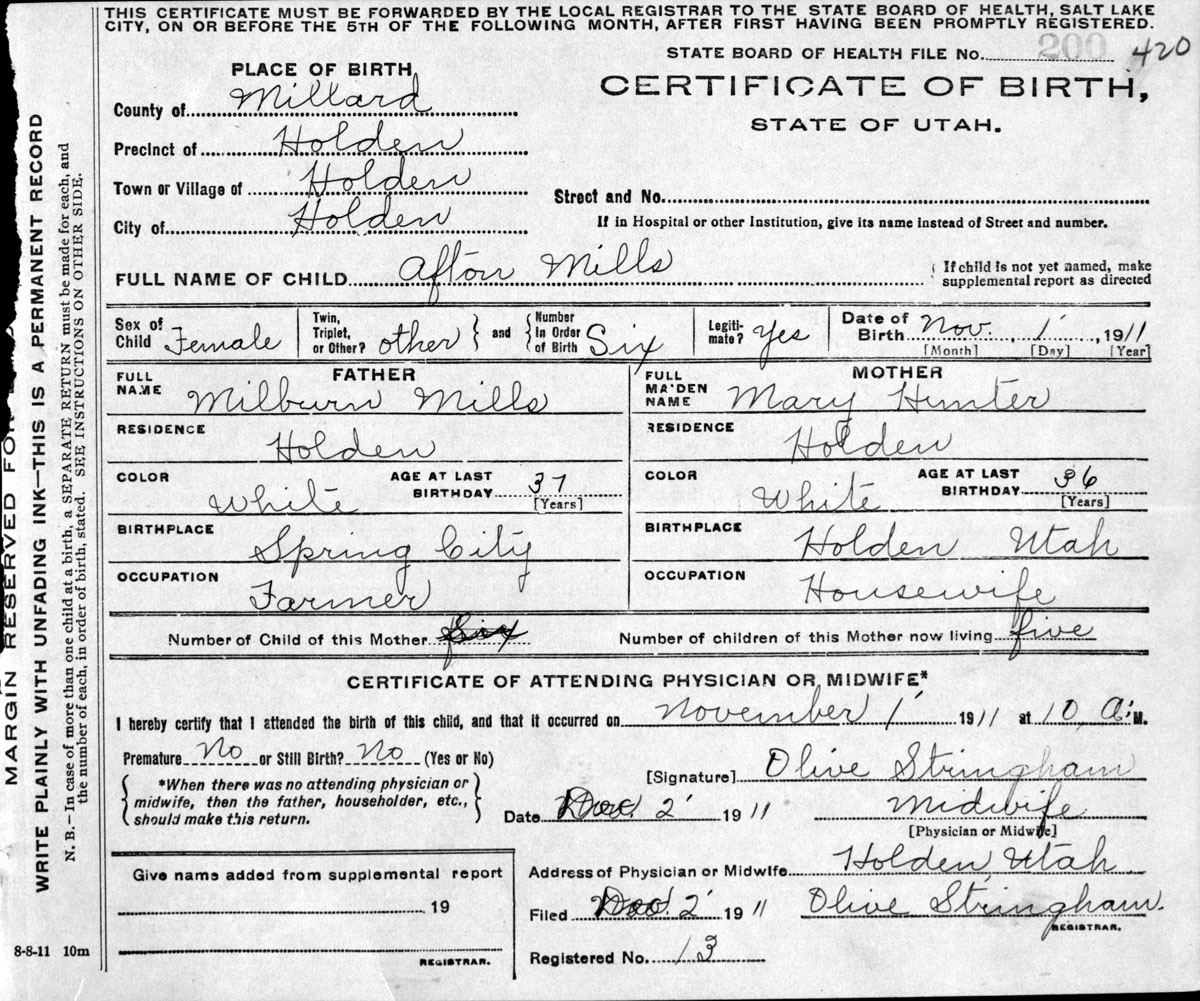 THIS CERTIFICATE MUST BE FORWARDED BY THE LOCAL REGISTRAR TO THE STATE BOARD OF HEALTH, SALT LAKE
CITY, ON OR BEFORE THE 5TH OF THE FOLLOWING MONTH, AFTER FIRST HAVING BEEN PROMPTLY REGISTERED.
STATE BOARD OF HEALTH FILE No. 200 420
CERTIFICATE OF BIRTH,
STATE OF UTAH.
PLACE OF BIRTH
County of Millard
Precinct of Holden
Town or Village of Holden
City of Holden
Street and No.
If in Hospital or other Institution, give its name instead of Street and number.
FULL NAME OF CHILD Afton Mills
If child is not yet named, make
supplemental report as directed
Sex of Child Female
Twin, Triplet, or Other? other and Number In Order of Birth Six
Legiti-mate? Yes
Date of Birth Nov. 1, 1911
[Month] [Day] [Year]
FATHER
FULL NAME Milburn Mills
RESIDENCE Holden
COLOR White AGE AT LAST BIRTHDAY 37 [Years]
BIRTHPLACE Spring City
OCCUPATION Farmer
MOTHER
FULL MAIDEN NAME Mary Hunter
RESIDENCE Holden
COLOR White AGE AT LAST BIRTHDAY 36 [Years]
BIRTHPLACE Holden Utah
OCCUPATION Housewife
Number of Child of this Mother six Number of children of this Mother now living five
CERTIFICATE OF ATTENDING PHYSICIAN OR MIDWIFE*
I hereby certify that I attended the birth of this child, and that it occurred on November 1 1911 at 10 A. M.
Premature No or Still Birth? No (Yes or No)
*When there was no attending physician or
midwife, then the father, householder, etc.,
should make this return.
[Signature] Olive Stringham
Date 2 1911 Midwife
[Physician or Midwife]
Give name added from supplemental report
19
REGISTRAR.
Address of Physician or Midwife Holden, Utah
Filed 2 1911 Olive Stringham.
REGISTRAR.
Registered No. 13
8-8-11 10m
MARGIN RESERVED FOR
WRITE PLAINLY WITH UNFADING INK—THIS IS A PERMANENT RECORD
N. B.—In case of more than one child at a birth, a SEPARATE RETURN must be made for each, and
the number of each, in order of birth, stated. SEE INSTRUCTIONS ON OTHER SIDE.